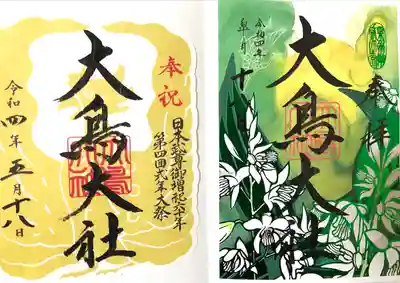 日本武尊御増祀六十年
第四回式年大祭
奉祝
大鳥大社
令和四年五月十八日
奉拝
大鳥大社
令和四年
皐月十八日